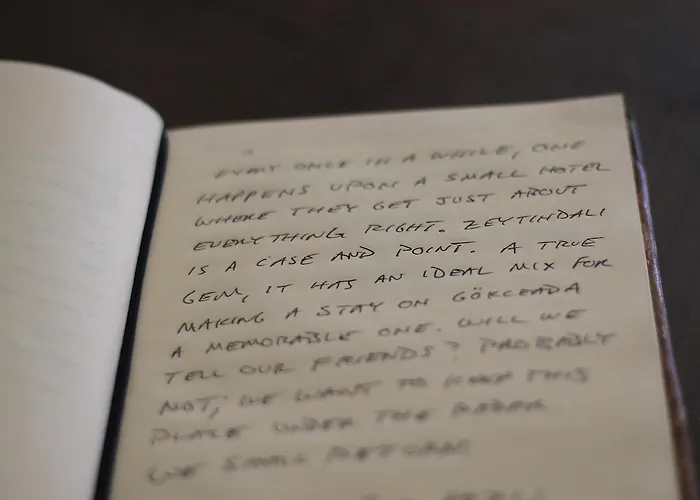 EVERY ONCE IN A WHILE, ONE
HAPPENS UPON A SMALL HOTEL
WHERE THEY GET JUST ABOUT
EVERYTHING RIGHT. ZEYTINDALI
IS A CASE AND POINT. A TRUE
GEM, IT HAS AN IDEAL MIX FOR
MAKING A STAY ON GÖKCEADA
A MEMORABLE ONE. WILL WE
TELL OUR FRIENDS? PROBABLY
NOT, WE WANT TO KEEP THIS
PLACE UNDER THE RADAR.
WE SHALL RETURN